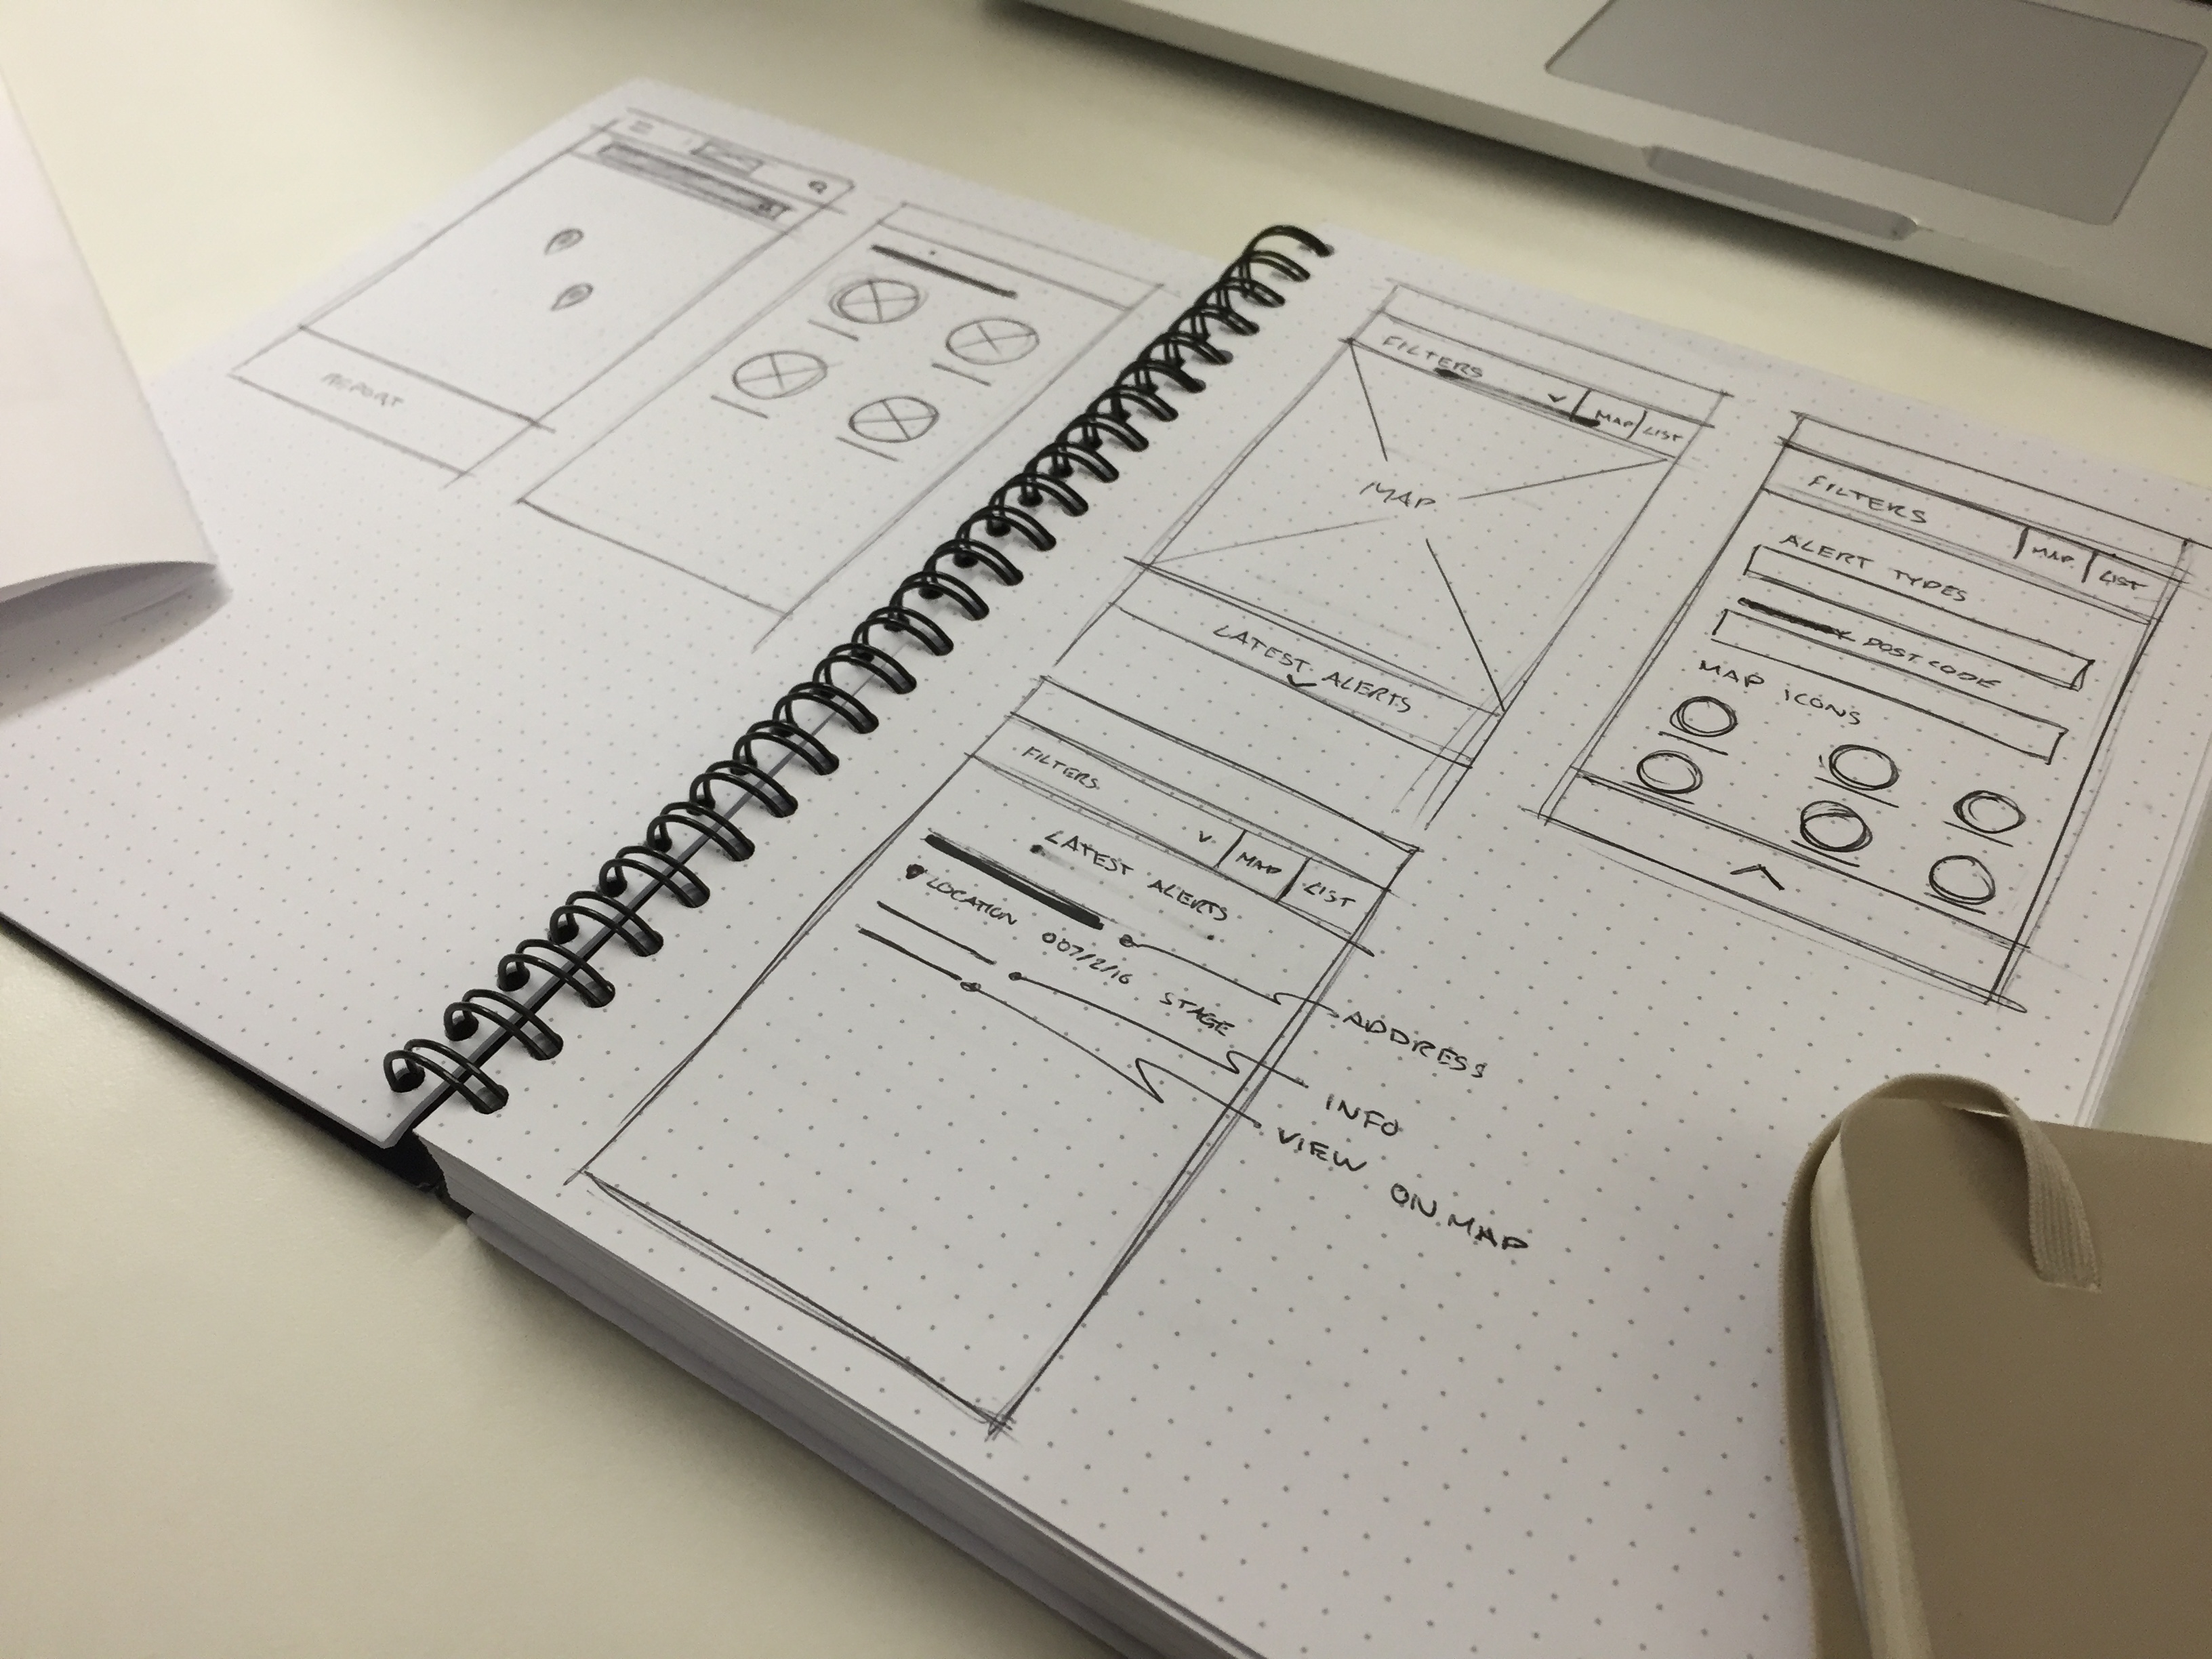 REPORT
FILTERS
MAP LIST
MAP
LATEST ALERTS
FILTERS
MAP LIST
ALERT TYPES
POST CODE
MAP ICONS
FILTERS
MAP LIST
LATEST ALERTS
LOCATION 007/2/16 STAGE
ADDRESS
INFO
VIEW ON MAP